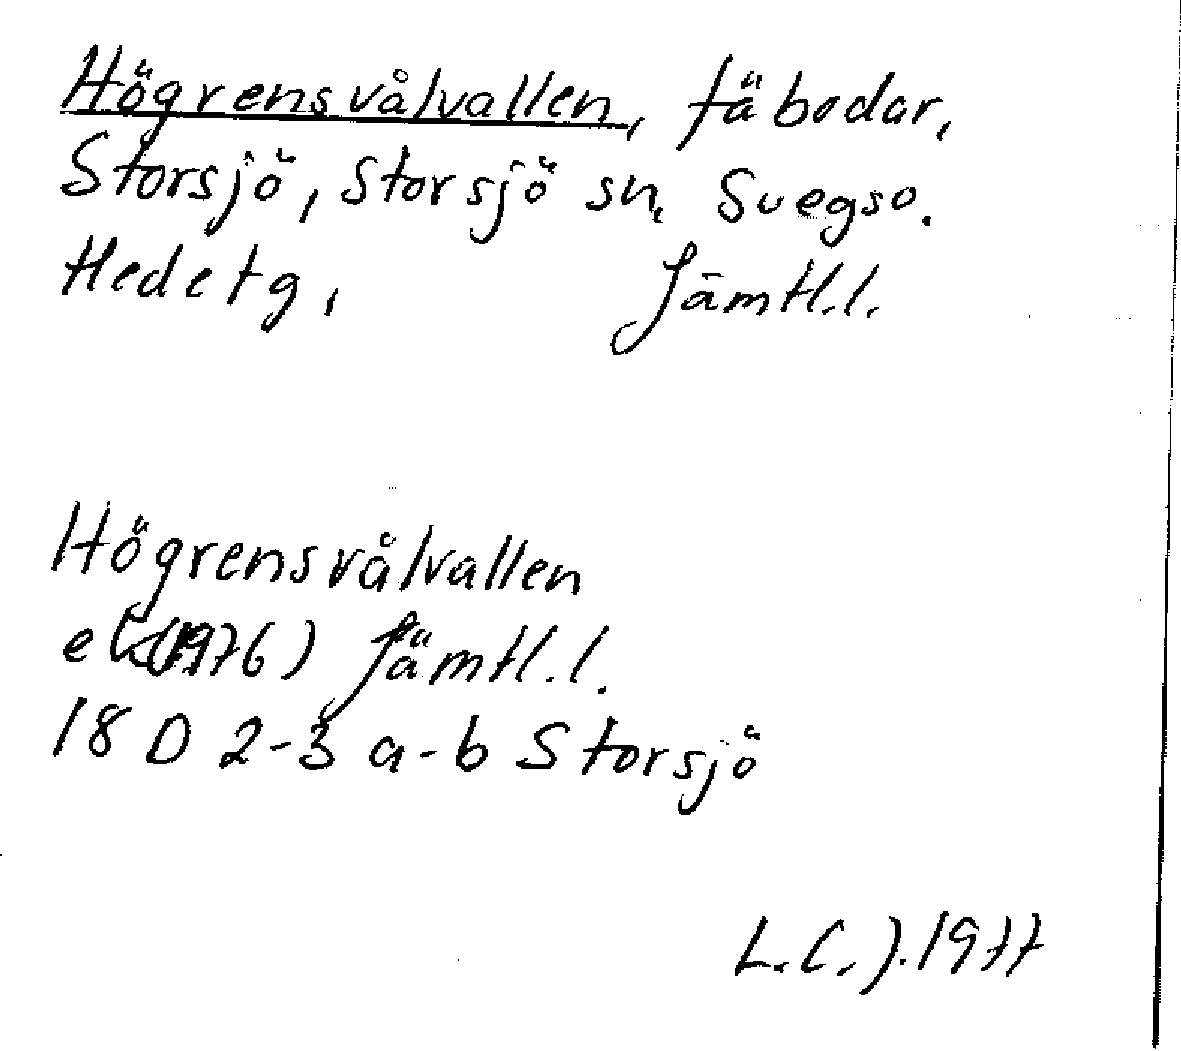 Högrensvålvallen, fäbodar,
Storsjö, Storsjö sn, Svegs o.
Hede tg, Jämtl.l.
Högrensvålvallen
ek (1976) Jämtl.l.
18 D 2-3 a-b Storsjö
L.C.J. 1977